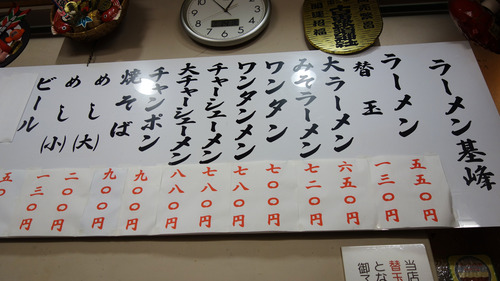 ラーメン基峰
ラーメン 五五〇円
替玉 一三〇円
大ラーメン 六五〇円
みそラーメン 七二〇円
ワンタン 七〇〇円
ワンタンメン 七八〇円
チャーシューメン 七八〇円
大チャーシューメン 八八〇円
チャンポン 九〇〇円
焼そば 九〇〇円
めし(大) 二〇〇円
めし(小) 一三〇円
ビール 五
当店
替玉
とな